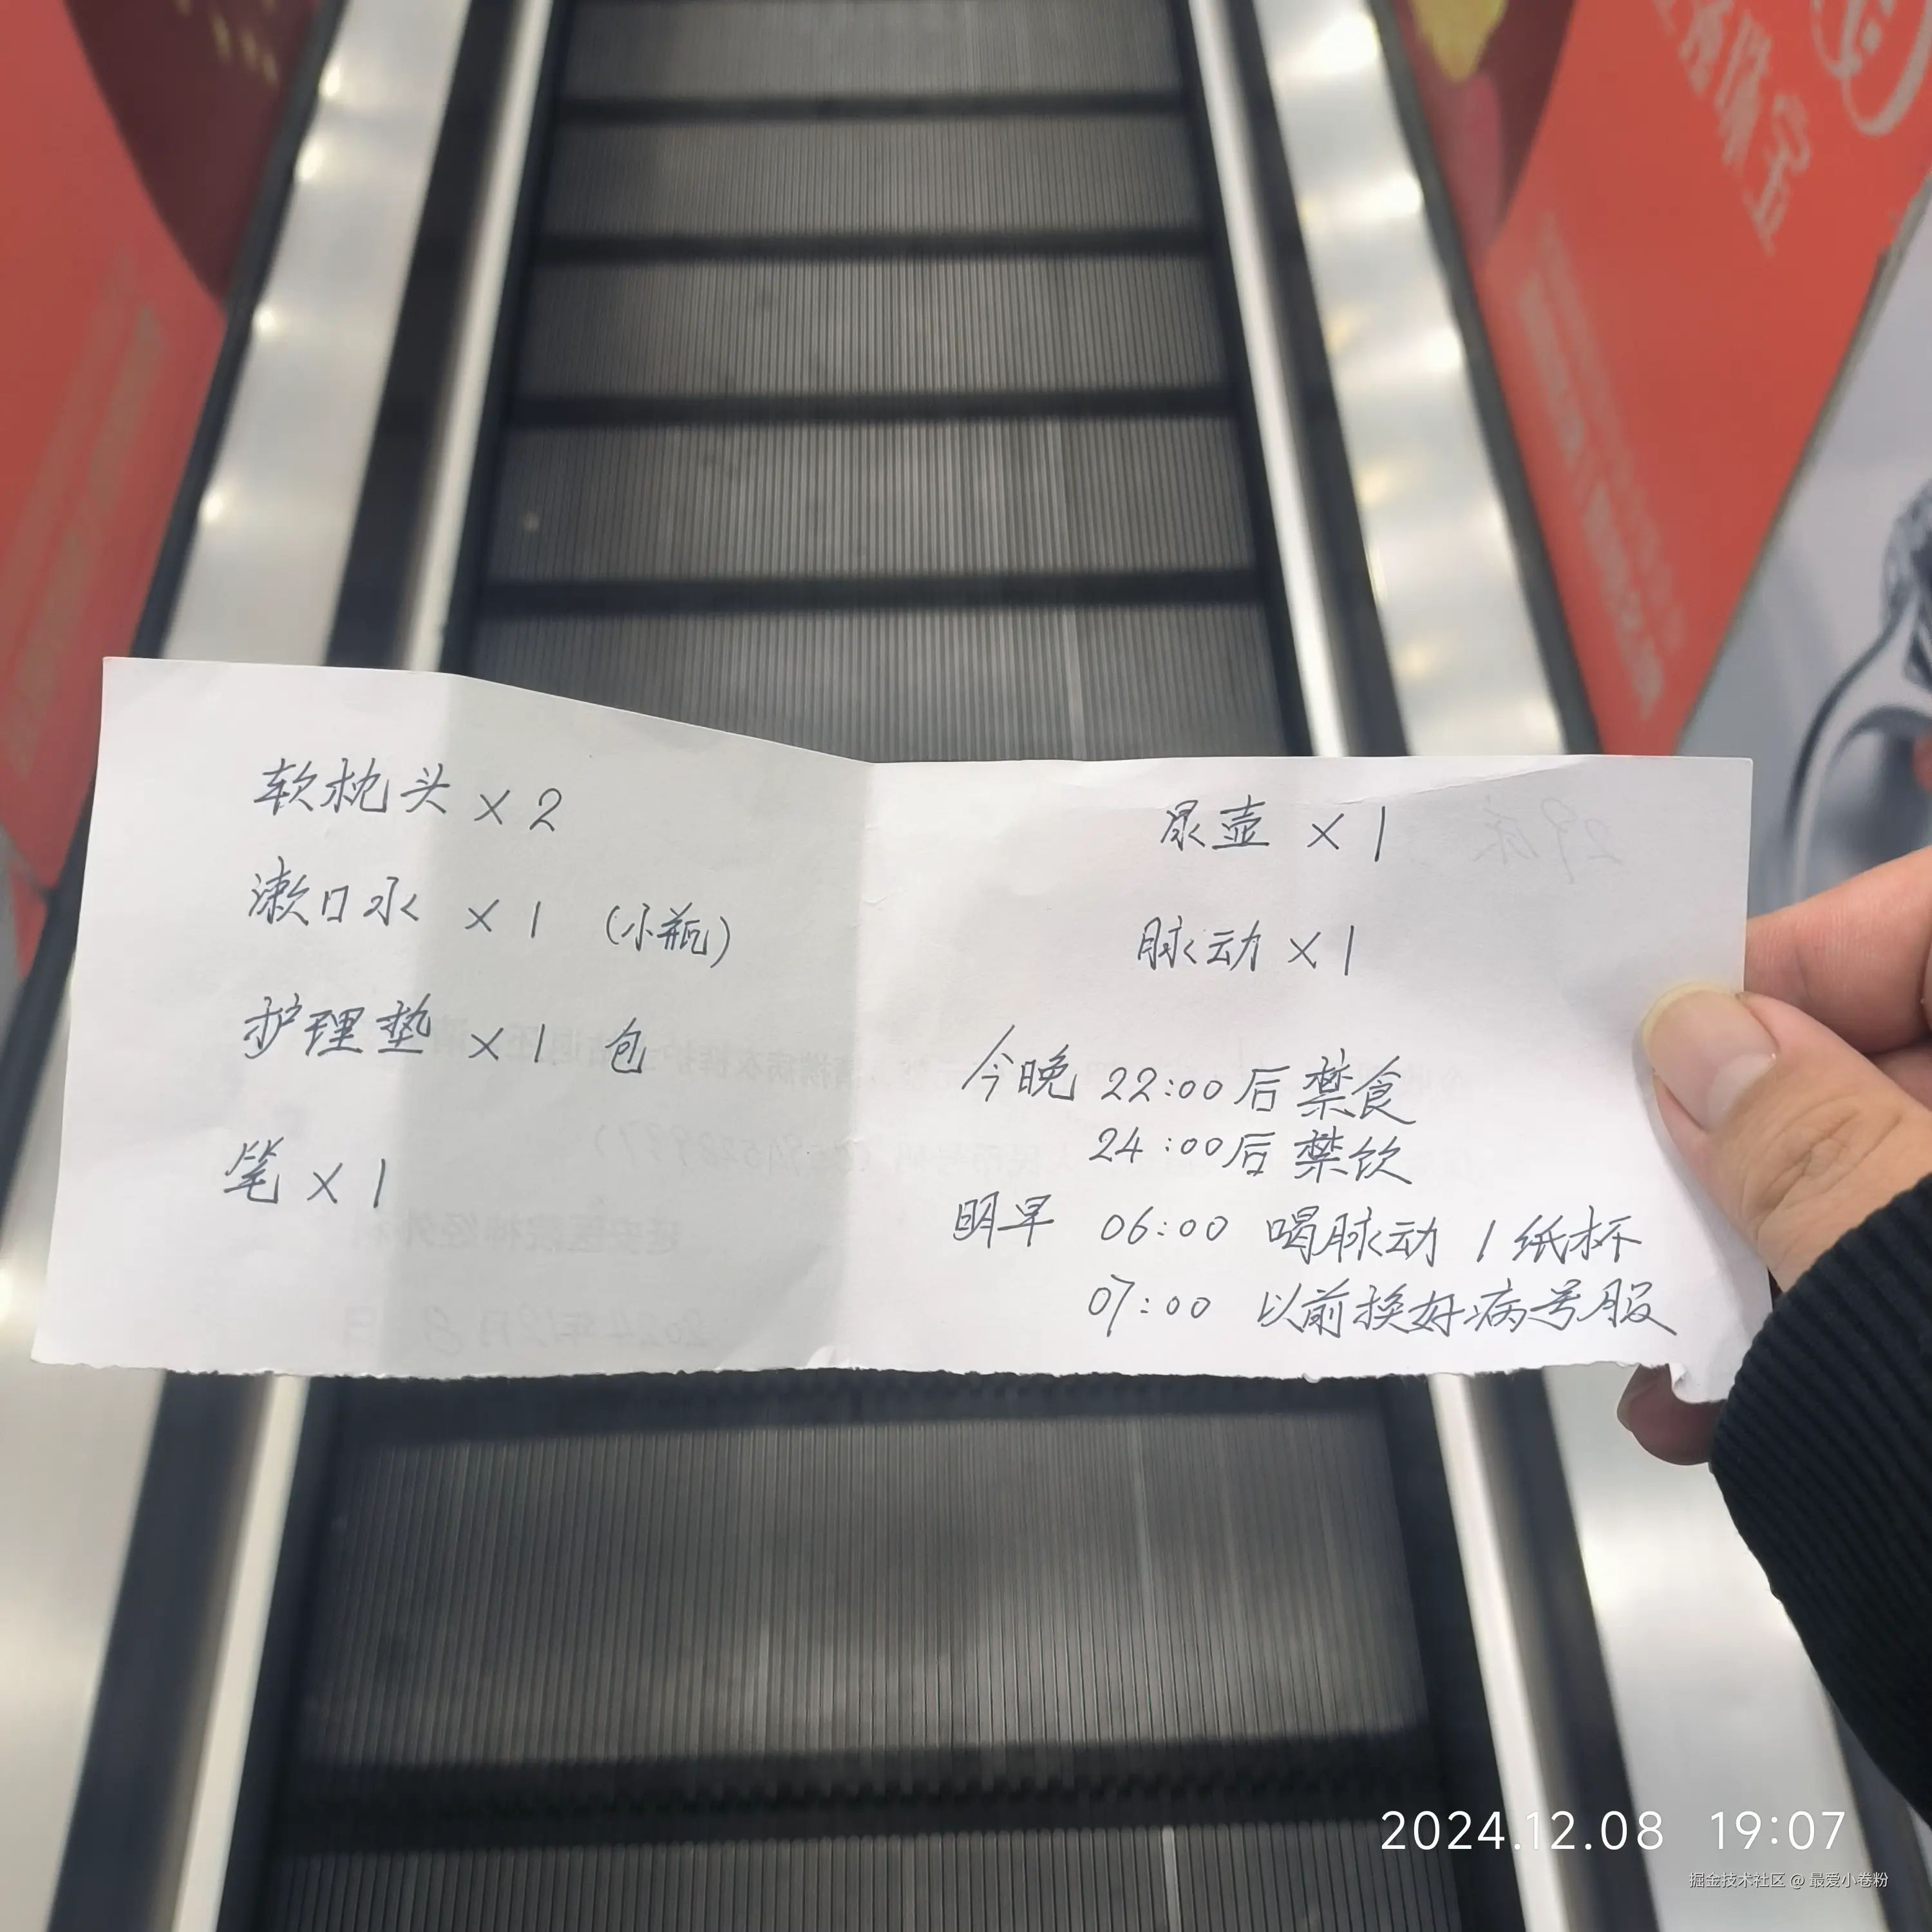 软枕头 × 2
漱口水 × 1 (小瓶)
护理垫 × 1 包
笔 × 1
尿壶 × 1
脉动 × 1
今晚 22:00 后禁食
24:00 后禁饮
明早 06:00 喝脉动 1 纸杯
07:00 以前换好病号服
29床
延安医院神经外科
2024年12月8日
2024.12.08 19:07
掘金技术社区 @ 最爱小卷粉